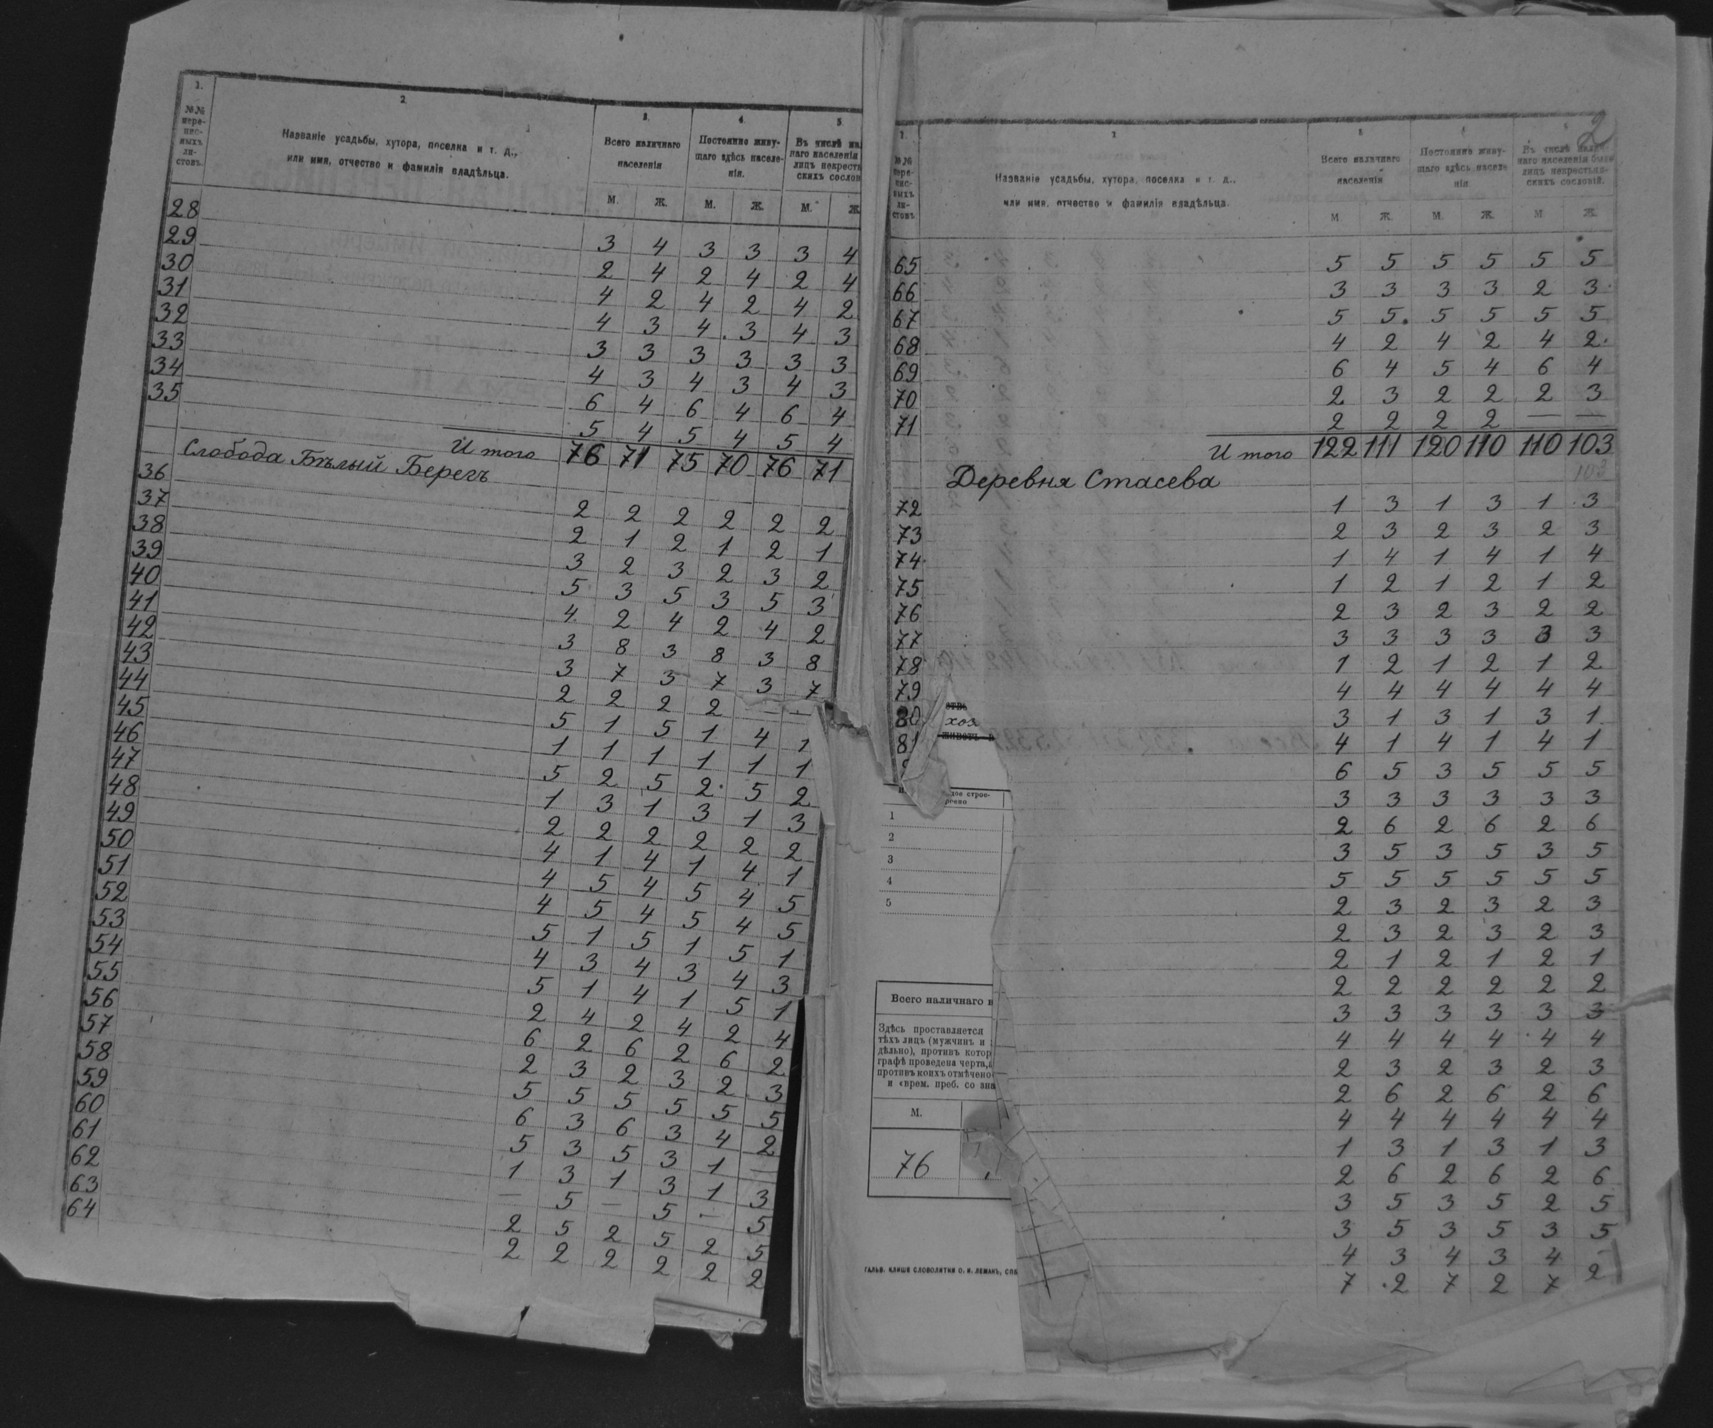 1.
2
3.
4.
5.
№№ пере-
пис-
ныхъ
ли-
стовъ.
Названіе усадьбы, хутора, поселка и т. д.,
или имя, отчество и фамилія владѣльца.
Всего наличнаго
населенія
Постоянно живу-
щаго здѣсь населе-
нія.
Въ числѣ
наго населенія
лицъ
скихъ
М. Ж. М. Ж. М. Ж
28 3 4 3 3 3 4
29 2 4 2 4 2 4
30 4 2 4 2 4 2
31 4 3 4 3 4 3
32 3 3 3 3 3 3
33 4 3 4 3 4 3
34 6 4 6 4 6 4
35 5 4 5 4 5 4
Итого 76 71 75 70 76 71
Слобода Бѣлый Берегъ
36 2 2 2 2 2 2
37 2 1 2 1 2 1
38 3 2 3 2 3 2
39 5 3 5 3 5 3
40 4 2 4 2 4 2
41 3 8 3 8 3 8
42 3 7 3 7 3 7
43 2 2 2 2 — —
44 5 1 5 1 4 1
45 1 1 1 1 1 1
46 5 2 5 2 5 2
47 1 3 1 3 1 3
48 2 2 2 2 2 2
49 4 1 4 1 4 1
50 4 5 4 5 4 5
51 4 5 4 5 4 5
52 5 1 5 1 5 1
53 4 3 4 3 4 3
54 5 1 4 1 5 1
55 2 4 2 4 2 4
56 6 2 6 2 6 2
57 2 3 2 3 2 3
58 5 5 5 5 5 5
59 6 3 6 3 4 2
60 5 3 5 3 1 —
61 1 3 1 3 1 3
62 — 5 — 5 — 5
63 2 5 2 5 2 5
64 2 2 2 2 2 2
2
№№
пере-
пис-
ныхъ
ли-
стовъ
Названіе усадьбы, хутора, поселка и т. д.,
или имя, отчество и фамилія владѣльца.
Всего наличнаго
населенія
Постоянно живу-
щаго здѣсь населе-
нія
Въ числѣ налич-
наго населенія было
лицъ некрестьян-
скихъ сословій.
М. Ж. М. Ж. М Ж.
65 5 5 5 5 5 5
66 3 3 3 3 2 3
67 5 5 5 5 5 5
68 4 2 4 2 4 2
69 6 4 5 4 6 4
70 2 3 2 2 2 3
71 2 2 2 2 — —
Итого 122 111 120 110 110 103
103
Деревня Стасева
72 1 3 1 3 1 3
73 2 3 2 3 2 3
74 1 4 1 4 1 4
75 1 2 1 2 1 2
76 2 3 2 3 2 2
77 3 3 3 3 3 3
78 1 2 1 2 1 2
79 4 4 4 4 4 4
80 3 1 3 1 3 1
81 4 1 4 1 4 1
6 5 3 5 5 5
3 3 3 3 3 3
2 6 2 6 2 6
3 5 3 5 3 5
5 5 5 5 5 5
2 3 2 3 2 3
2 3 2 3 2 3
2 1 2 1 2 1
2 2 2 2 2 2
3 3 3 3 3 3
4 4 4 4 4 4
2 3 2 3 2 3
2 6 2 6 2 6
4 4 4 4 4 4
1 3 1 3 1 3
2 6 2 6 2 6
3 5 3 5 2 5
3 5 3 5 3 5
4 3 4 3 4 —
7 2 7 2 7 2
хоз
1
2
3
4
5
Всего наличнаго н
Здѣсь проставляется
тѣхъ лицъ (мужчинъ и
дѣльно), противъ котор
графѣ проведена черта,
противъ коихъ отмѣчено
и «врем. преб. со зна
М.
76
ГАЛЬВ. КЛИШЕ СЛОВОЛИТНИ О. И. ЛЕМАНЪ, СПБ